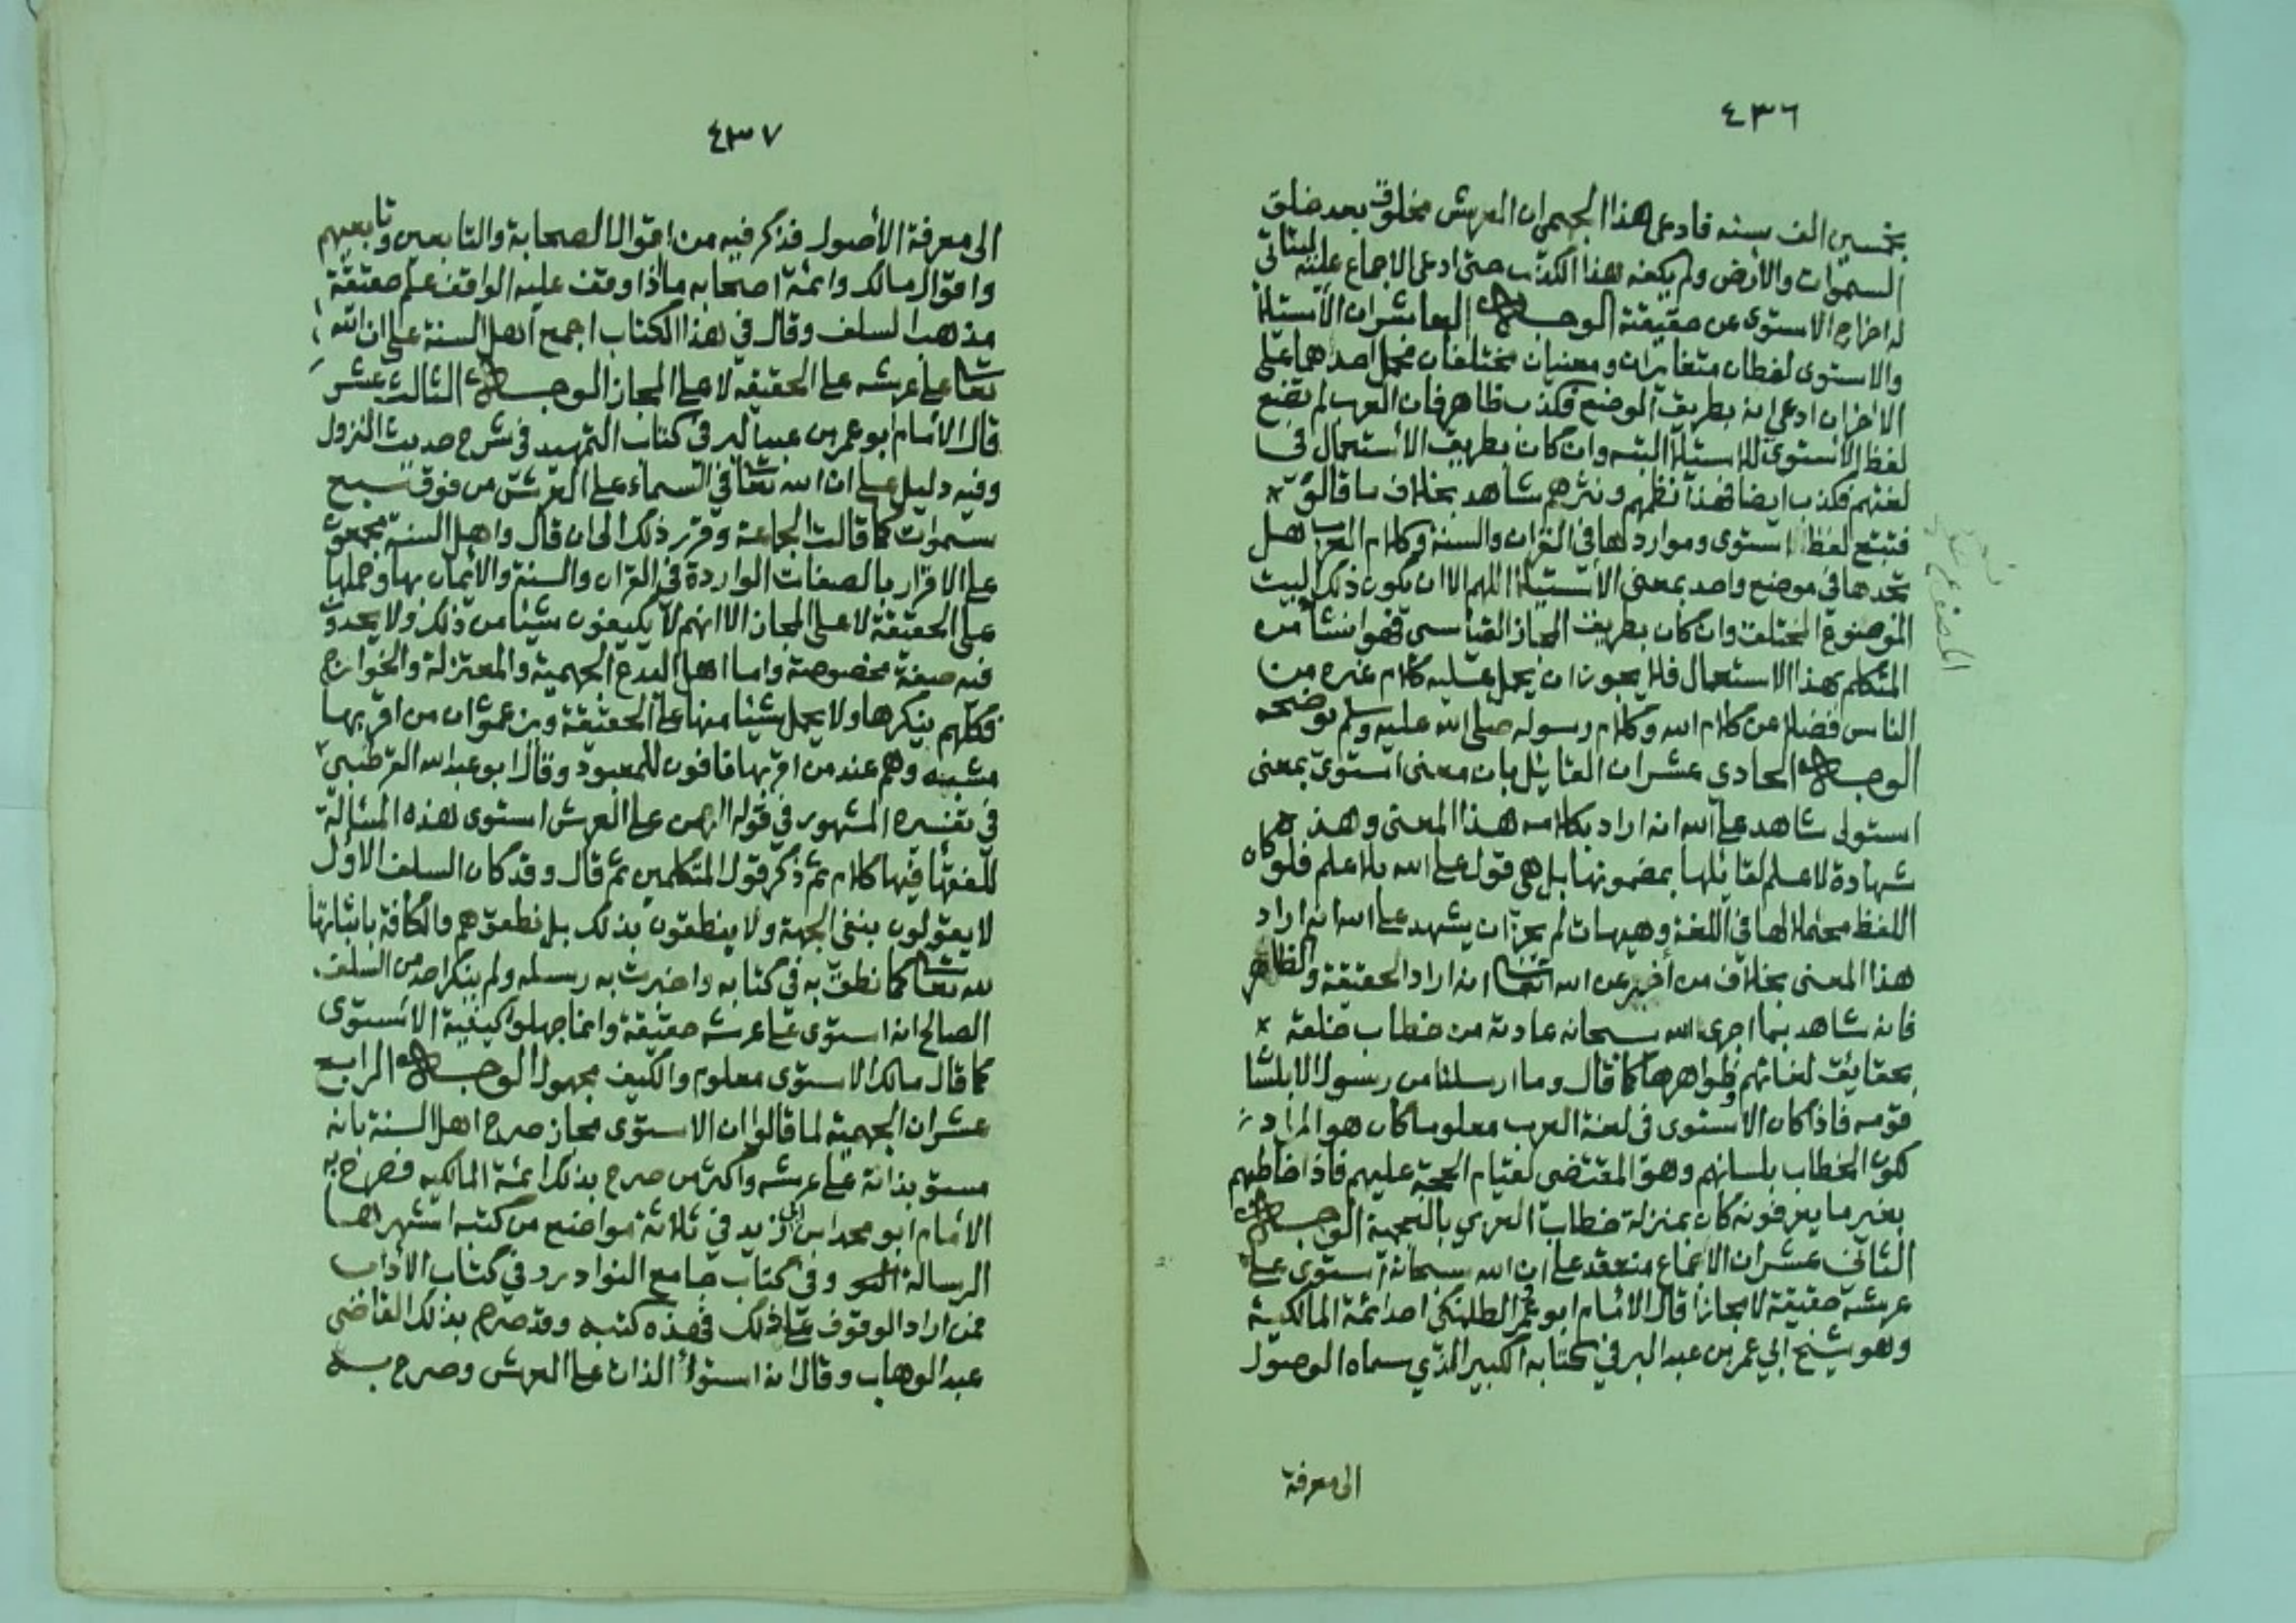 ٤٣٦
بخمسين الف سنه فادعى هذا الجهمي ان العرش مخلوق بعد خلق
السموات والأرض ولم يكفه هذا الكذب حتى ادعى الاجماع عليه ليتاتي
له اخراج الاستوى عن حقيقته الوجه العاشر ان الأستيلا
والاستوى لفظان متغايران ومعنيان مختلفان فحمل احدهما على
الاخر ان ادعي انه بطريق الموضع فكذب ظاهر فان العرب لم تضع
لفظ الاستوى للاستيلا البته وان كان بطريق الأستعمال في
لغتهم فكذب ايضا فهذا نظمهم ونثرهم شاهد بخلاف ما قالوه
فتتبع لفظ استوى ومواردها في القران والسنة وكلام العرب هل
تجدها في موضع واحد بمعنى الاستيلا اللهم الا ان يكون ذلك البيت
الموضوع المختلق وان كان بطريق المجاز القياسي فهو انشا من
المتكلم بهذا الاستعمال فلا يجوز ان يحمل عليه كلام غيره من
الناس فضلا عن كلام الله وكلام رسوله صلى الله عليه وسلم يوضحه
الوجه الحادي عشر ان القائل بان معنى استوى بمعنى
استولى شاهد على الله انه اراد بكلامه هذا المعنى وهذه
شهادة لا علم لقائلها بمضمونها بل هي قول على الله بلا علم فلو كان
اللفظ محتملا لها في اللغة وهيهات لم يجز ان يشهد على الله انه اراد
هذا المعنى بخلاف من أخبر عن الله تعا انه اراد الحقيقة والظاهر
فانه شاهد بما اجرى الله سبحانه عادته من خطاب خلقه
بحقايق لغاتهم وظواهرها كما قال وما ارسلنا من رسول الا بلسا
قومه فاذا كان الاستوى في لغة العرب معلوما كان هو المراد
لكون الخطاب بلسانهم وهو المقتضي لقيام الحجة عليهم فاذا خاطبهم
بغير ما يعرفونه كان بمنزلة خطاب العربي بالعجمية الوجه
الثاني عشر ان الاجماع منعقد على ان الله سبحانه استوى على
عرشه حقيقة لا مجازا قال الامام ابو عمر الطلمنكي احد ائمة المالكية
وهو شيخ ابي عمر بن عبد البر في كتابه الكبير الذي سماه الوصول
الى معرفة
٤٣٧
الى معرفة الأصول فذكر فيه من اقوال الصحابة والتابعين وتابعيهم
واقوال مالك وائمة اصحابه ما إذا وقف عليه الواقف علم حقيقة
مذهب السلف وقال في هذا الكتاب اجمع اهل السنة على ان الله
تعا على عرشه على الحقيقة لا على المجاز الوجه الثالث عشر
قال الامام ابو عمر بن عبد البر في كتاب التمهيد في شرح حديث النزول
وفيه دليل على ان الله تعا في السماء على العرش من فوق سبع
سموات كما قالت الجماعة وقرر ذلك الى ان قال واهل السنة مجمعون
على الاقرار بالصفات الواردة في القران والسنة والايمان بها وحملها
على الحقيقة لا على المجاز الا انهم لا يكيفون شيئا من ذلك ولا يحدون
فيه صفة مخصوصة واما اهل البدع الجهمية والمعتزلة والخوارج
فكلهم ينكرها ولا يحمل شيئا منها على الحقيقة ويزعمون ان من اقر بها
مشبه وهم عند من اقر بها نافون للمعبود وقال ابو عبد الله القرطبي
في تفسيره المشهور في قوله الرحمن على العرش استوى هذه المسالة
للفقها فيها كلام ثم ذكر قول المتكلمين ثم قال وقد كان السلف الاول
لا يقولون بنفي الجهة ولا ينطقون بذلك بل نطقوا هم والكافة باثباتها
لله تعا كما نطق به في كتابه واخبرت به رسله ولم ينكر احد من السلف
الصالح انه استوى على عرشه حقيقة وانما جهلوا كيفية الاستوى
كما قال مالك الاستوى معلوم والكيف مجهول الوجه الرابع
عشر ان الجهمية لما قالوا ان الاستوى مجاز صرح اهل السنة بانه
مستو بذاته على عرشه واكثر من صرح بذلك ائمة المالكيه فصرح به
الامام ابو محمد ابن ابي زيد في ثلاثة مواضع من كتبه اشهرها
الرسالة وفي كتاب جامع النوادر وفي كتاب الأداب
فمن اراد الوقوف على ذلك فهذه كتبه وقد صرح بذلك القاضي
عبد الوهاب وقال انه استوا الذات على العرش وصرح به